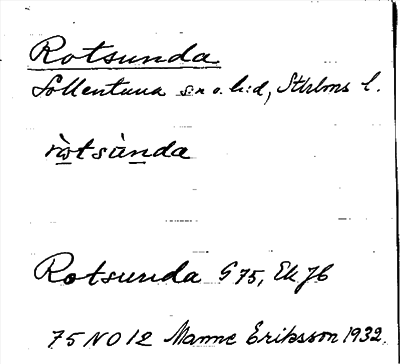 Rotsunda
Sollentuna sn o. h:d, Sthlms l.
ròtsùnda
Rotsunda G 75, Ek Jb
75 NO 12 Manne Eriksson 1932.